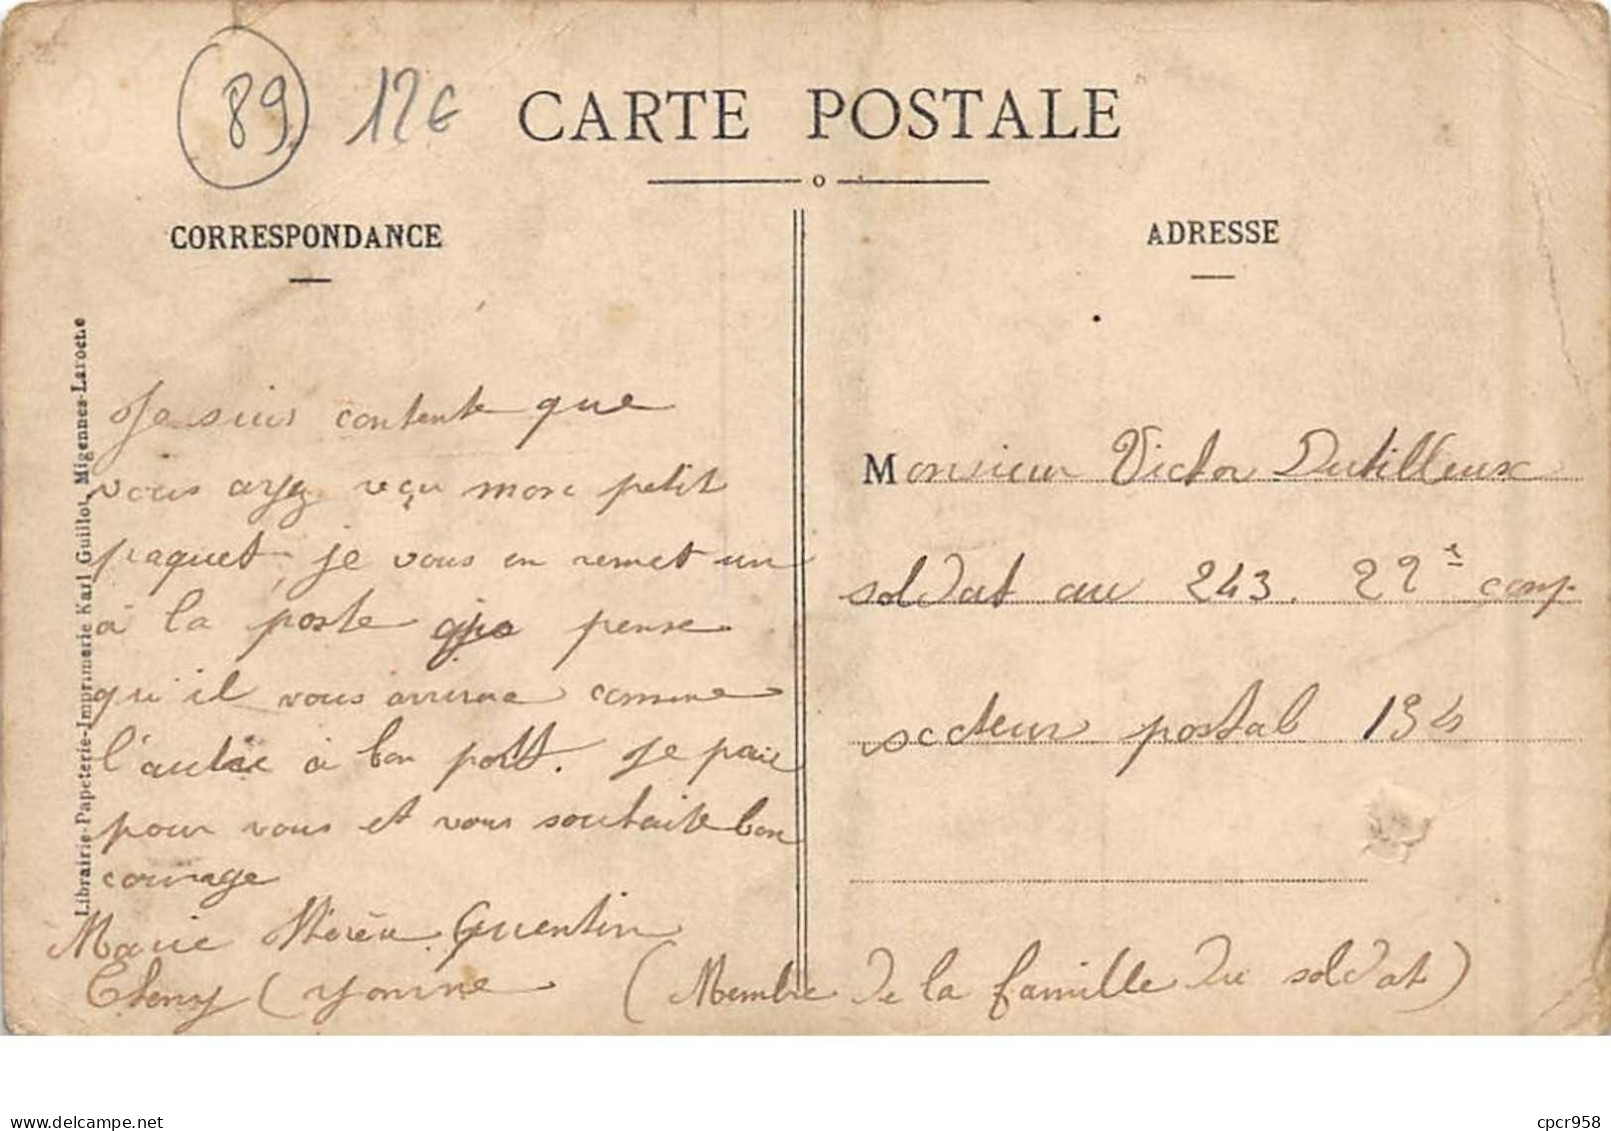 89 12€
CARTE POSTALE
CORRESPONDANCE
Je suis contente que
vous ayez reçu mon petit
paquet, je vous en remet un
à la poste je pense
qu'il vous arrivra comme
l'autre à bon port. Je prie
pour vous et vous souhaite bon
courage
Marie Quentin
Cheny (Yonne (Membre de la famille du soldat)
Librairie-Papeterie-Imprimerie Karl Guillot, Migennes-Laroche
ADRESSE
Monsieur Victor Dutilleux
soldat au 243. 22e comp
secteur postal 134
www.delcampe.net
cpcr958